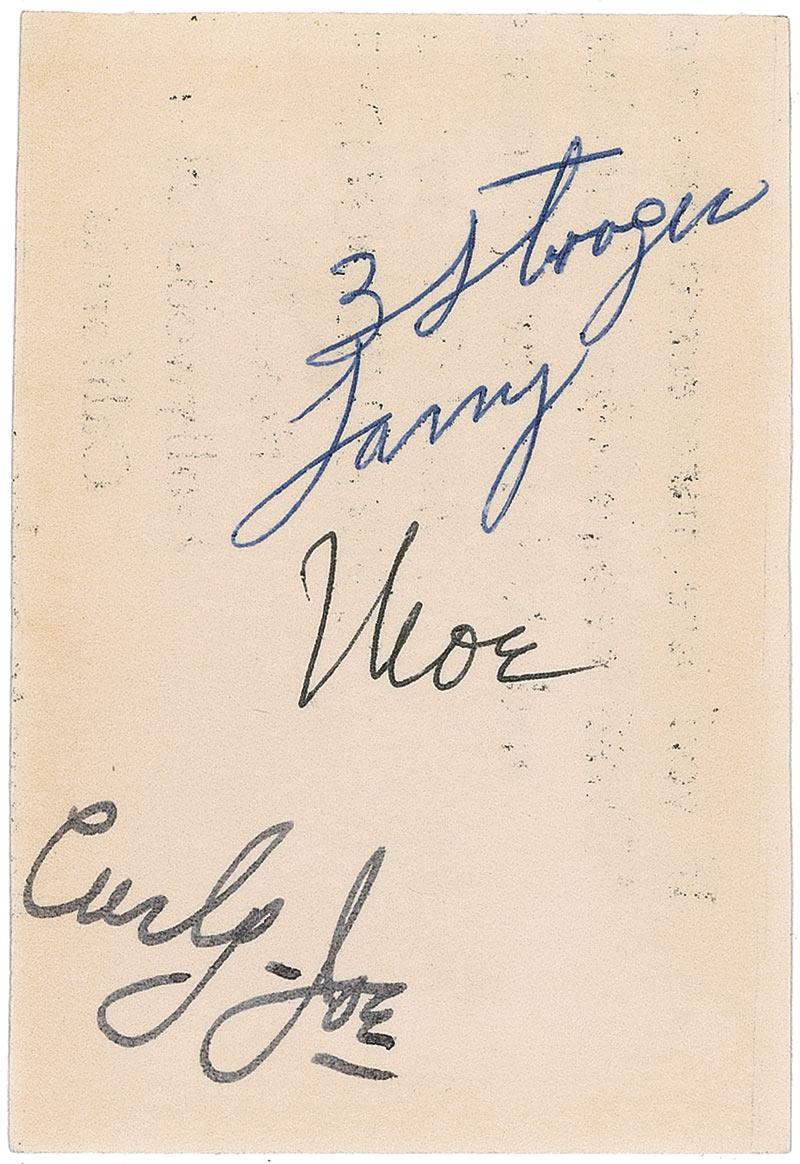 3 Stooges
Larry
Moe
Curly-Joe